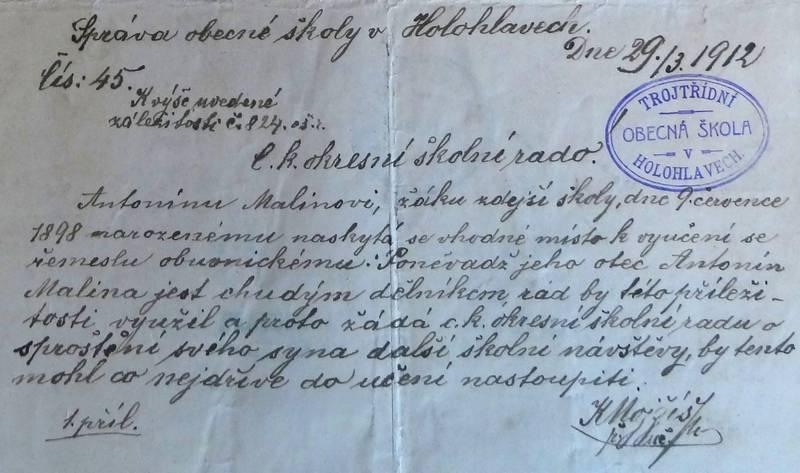 Správa obecné školy v Holohlavech.
Dne 29./3. 1912
Čís: 45.
K výše uvedené
záležitosti č. 824. o.š.r.
TROJTŘÍDNÍ
OBECNÁ ŠKOLA
V
HOLOHLAVECH.
C. k. okresní školní rado!
Antonínu Malinovi, žáku zdejší školy, dne 9. července
1898 narozenému naskytá se vhodné místo k vyučení se
řemeslu obuvnickému. Poněvadž jeho otec Antonín
Malina jest chudým dělníkem, rád by této příleži-
tosti využil a proto žádá c. k. okresní školní radu o
sproštění svého syna další školní návštěvy, by tento
mohl co nejdříve do učení nastoupiti.
1 příl.